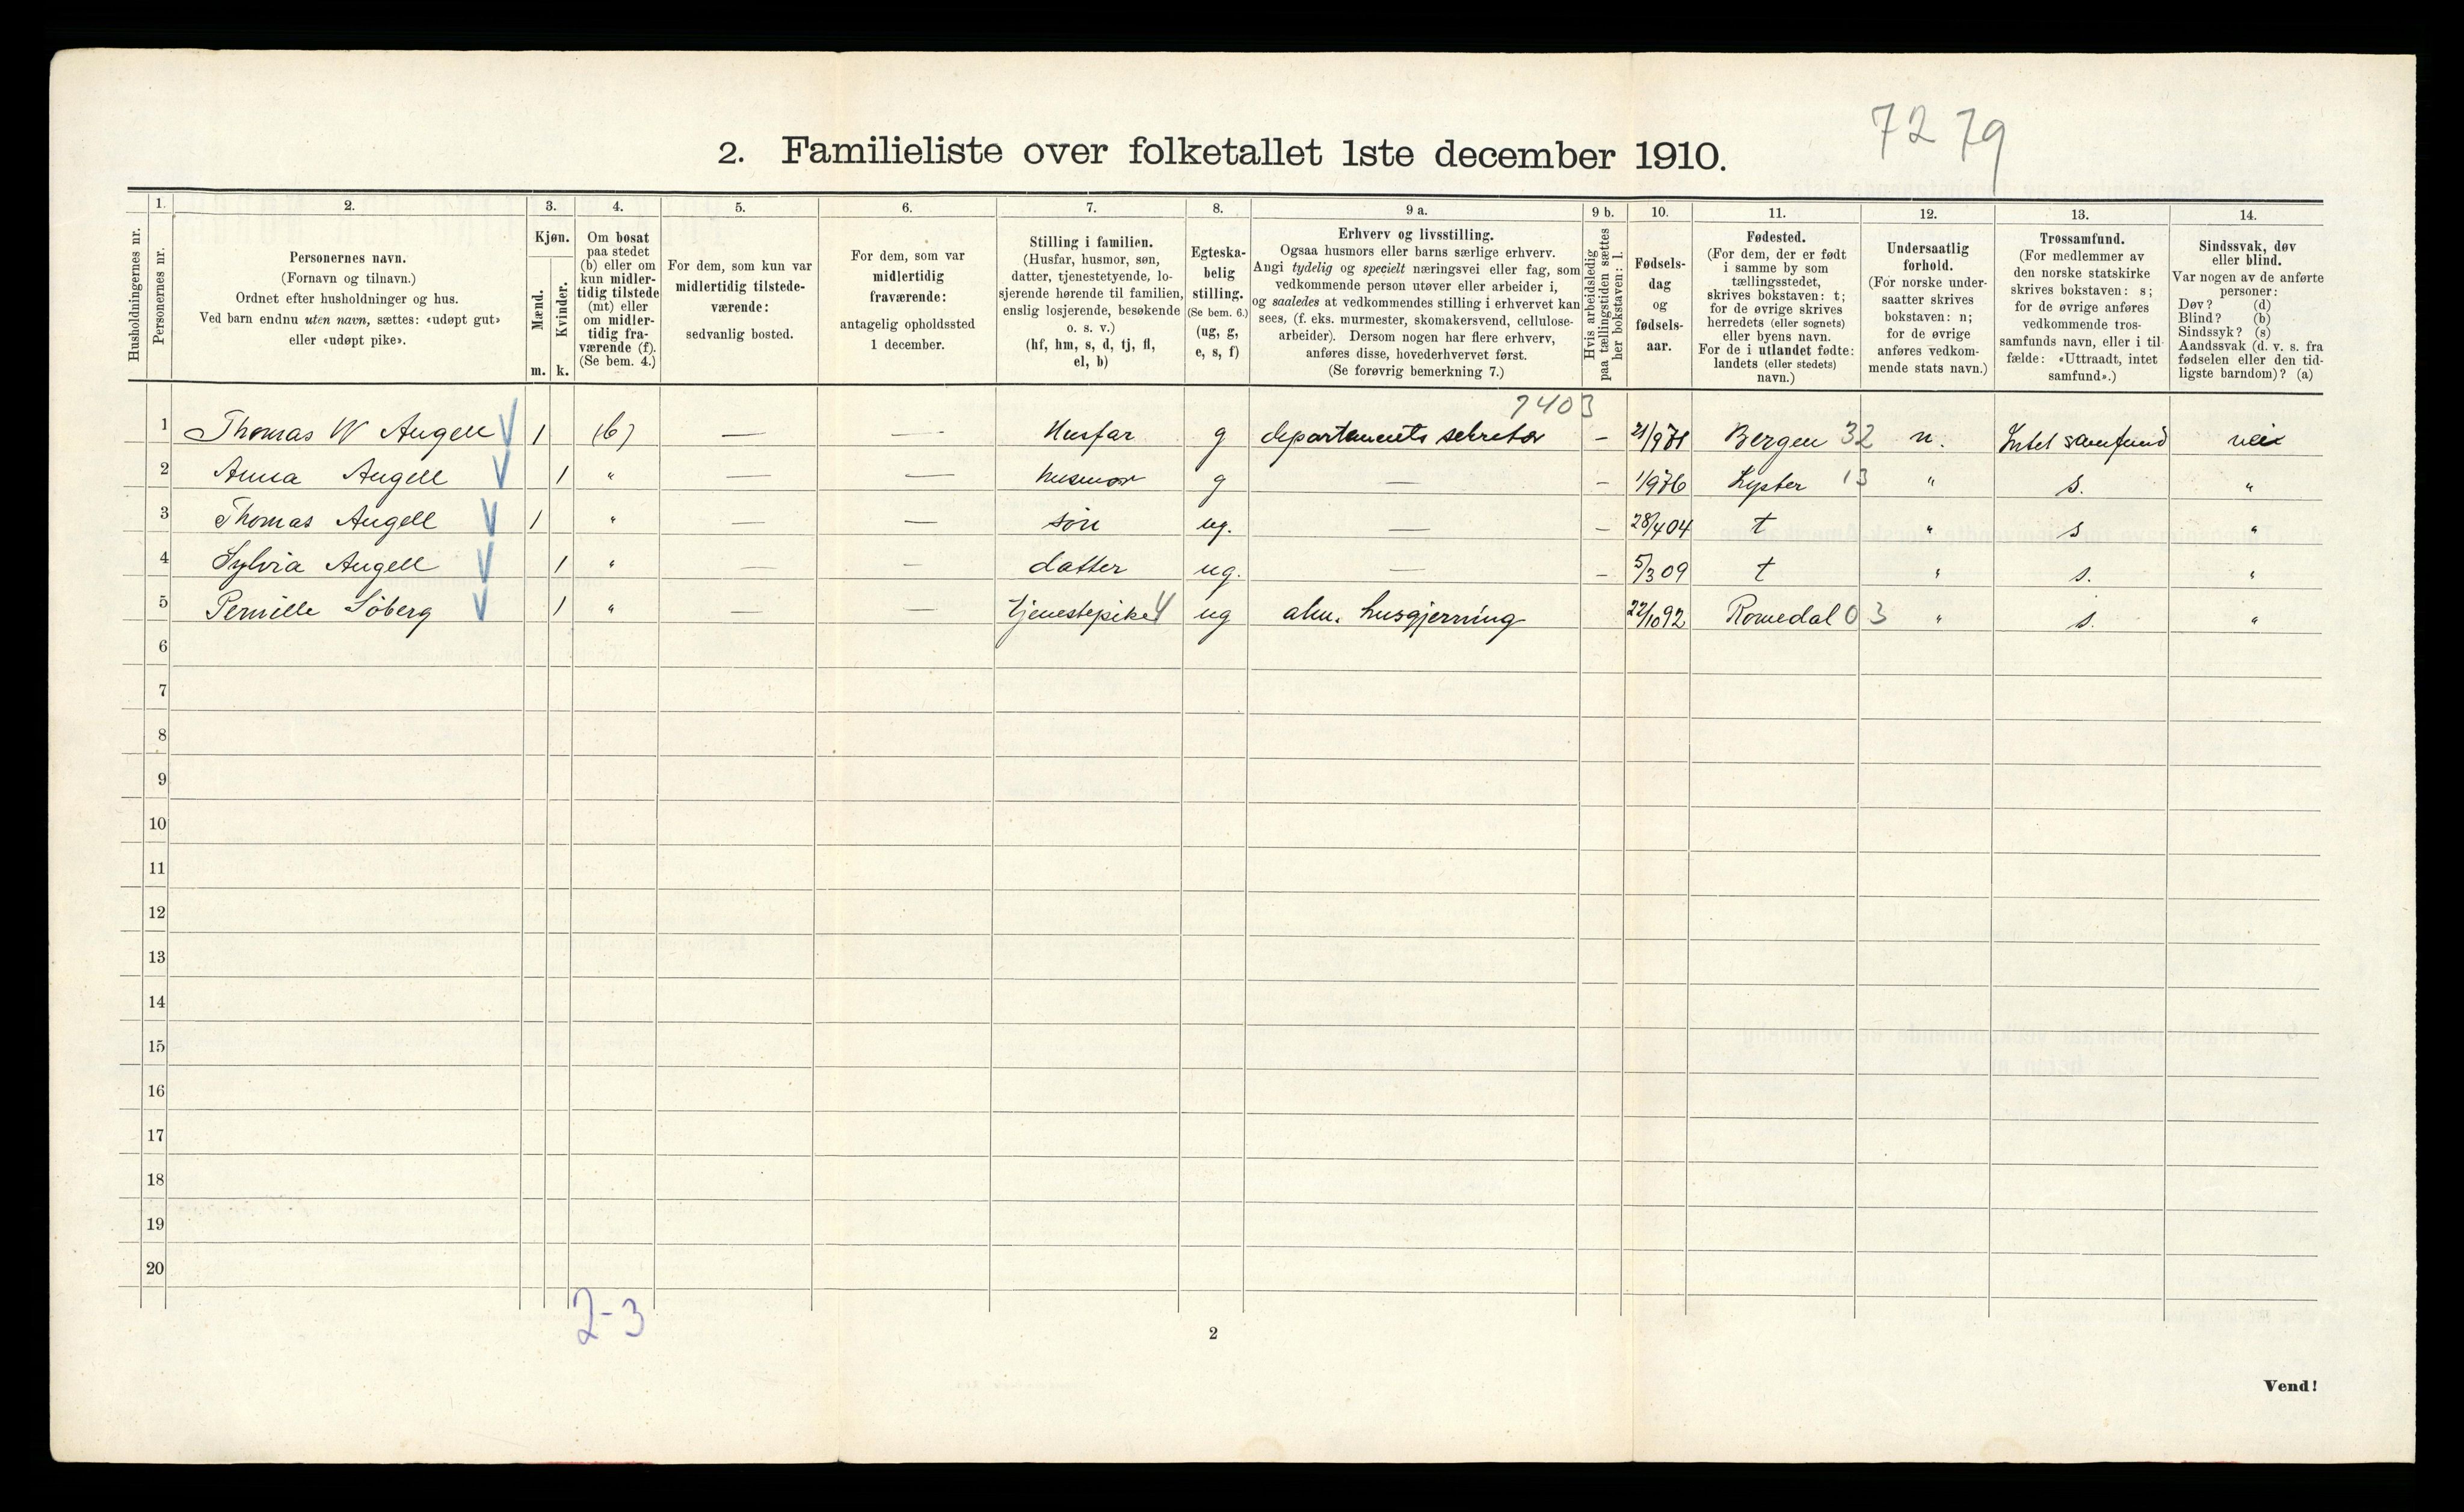 72 79
2. Familieliste over folketallet 1ste december 1910.
Husholdningernes nr.
1.
Personernes nr.
2.
Personernes navn.
(Fornavn og tilnavn.)
Ordnet efter husholdninger og hus.
Ved barn endnu uten navn, sættes: «udøpt gut»
eller «udøpt pike».
3.
Kjøn.
Mænd.
m.
Kvinder.
k.
4.
Om bosat
paa stedet
(b) eller om
kun midler-
tidig tilstede
(mt) eller
om midler-
tidig fra-
værende (f).
(Se bem. 4.)
5.
For dem, som kun var
midlertidig tilstede-
værende:
sedvanlig bosted.
6.
For dem, som var
midlertidig
fraværende:
antagelig opholdssted
1 december.
7.
Stilling i familien.
(Husfar, husmor, søn,
datter, tjenestetyende, lo-
sjerende hørende til familien,
enslig losjerende, besøkende
o. s. v.)
(hf, hm, s, d, tj, fl,
el, b)
8.
Egteska-
belig
stilling.
(Se bem. 6.)
(ug, g,
e, s, f)
9 a.
Erhverv og livsstilling.
Ogsaa husmors eller barns særlige erhverv.
Angi tydelig og specielt næringsvei eller fag, som
vedkommende person utøver eller arbeider i,
og saaledes at vedkommendes stilling i erhvervet kan
sees, (f. eks. murmester, skomakersvend, cellulose-
arbeider). Dersom nogen har flere erhverv,
anføres disse, hovederhvervet først.
(Se forøvrig bemerkning 7.)
9 b.
Hvis arbeidsledig
paa tællingstiden sættes
her bokstaven: l.
10.
Fødsels-
dag
og
fødsels-
aar.
11.
Fødested.
(For dem, der er født
i samme by som
tællingsstedet,
skrives bokstaven: t;
for de øvrige skrives
herredets (eller sognets)
eller byens navn.
For de i utlandet fødte:
landets (eller stedets)
navn.)
12.
Undersaatlig
forhold.
(For norske under-
saatter skrives
bokstaven: n;
for de øvrige
anføres vedkom-
mende stats navn.)
13.
Trossamfund.
(For medlemmer av
den norske statskirke
skrives bokstaven: s;
for de øvrige anføres
vedkommende tros-
samfunds navn, eller i til-
fælde: «Uttraadt, intet
samfund».)
14.
Sindssvak, døv
eller blind.
Var nogen av de anførte
personer:
Døv? (d)
Blind? (b)
Sindssyk? (s)
Aandssvak (d. v. s. fra
fødselen eller den tid-
ligste barndom)? (a)
7403
1 Thomas W Angell V 1 (b) — — Husfar g departements sekretær – 21/9 71 Bergen 32 n. Intet samfund nei
2 Anna Angell V 1 " — — husmor g — – 1/9 76 Lyster 13 " s. "
3 Thomas Angell V 1 " — — søn ug. — – 28/4 04 t " s "
4 Sylvia Angell V 1 " — — datter ug. — – 5/3 09 t " s. "
5 Pernille Söberg V 1 " — — tjenestepike 4 ug alm. husgjerning 22/10 92 Romedal 03 " s. "
6
7
8
9
10
11
12
13
14
15
16
17
18
19
20
2-3
2
Vend!